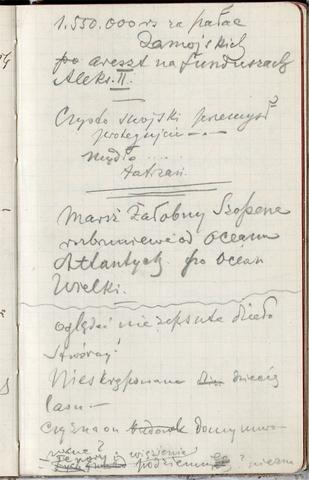 1.550.000 rs za pałac
Zamojskich
po areszt na funduszach
Aleks. II.
Czysto swojski przemysł?
proteguję — . —
mydło ....
tatrzań.
Marsz Żałobny Szopena
rozbrzmiewa od Oceanu
Atlantyck. po Ocean
Wielki.
oglądać nie zepsute dzieło
stwórcy!
Nieskrępowane dziecię
lasu —
Czyż na on domy
więzienia
podziemny ?